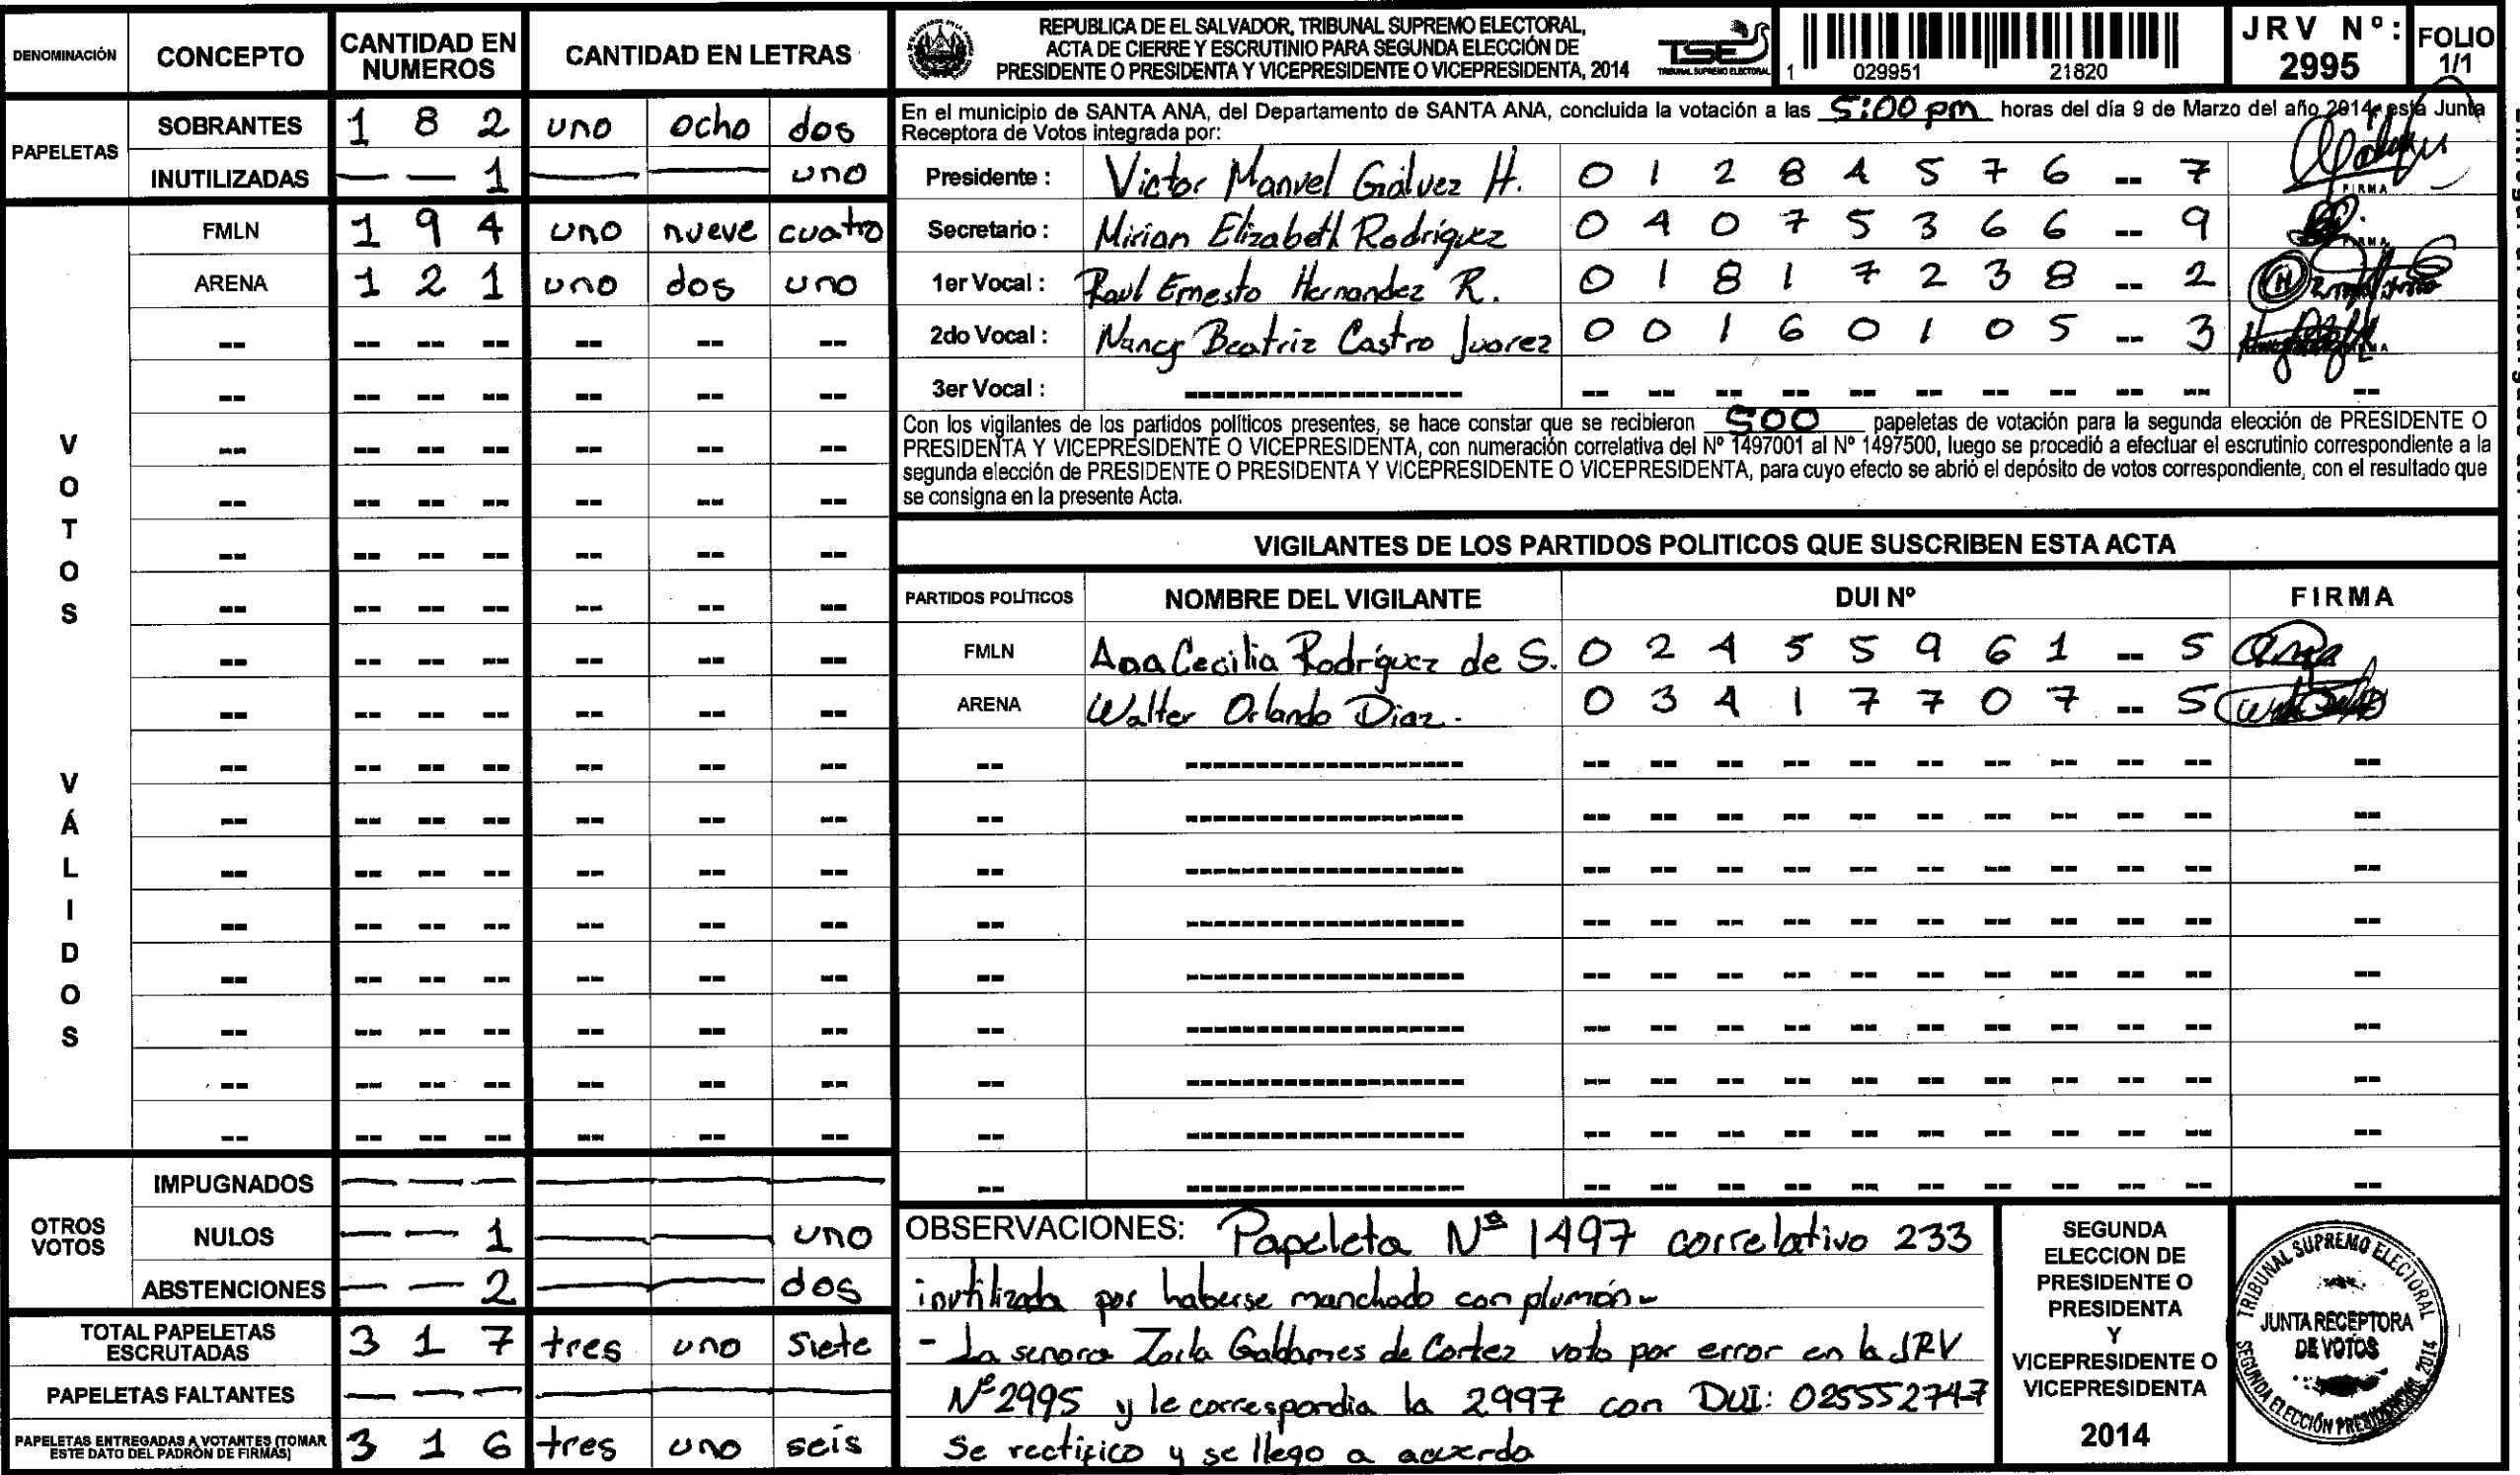 DENOMINACIÓN CONCEPTO CANTIDAD EN NUMEROS CANTIDAD EN LETRAS
PAPELETAS
SOBRANTES 1 8 2 uno ocho dos
INUTILIZADAS — — 1 — — uno
VOTOS VÁLIDOS
FMLN 1 9 4 uno nueve cuatro
ARENA 1 2 1 uno dos uno
OTROS VOTOS
IMPUGNADOS — — — — — —
NULOS — — 1 — — uno
ABSTENCIONES — — 2 — — dos
TOTAL PAPELETAS ESCRUTADAS 3 1 7 tres uno siete
PAPELETAS FALTANTES — — — — — —
PAPELETAS ENTREGADAS A VOTANTES (TOMAR
ESTE DATO DEL PADRÓN DE FIRMAS) 3 1 6 tres uno seis
REPUBLICA DE EL SALVADOR, TRIBUNAL SUPREMO ELECTORAL,
ACTA DE CIERRE Y ESCRUTINIO PARA SEGUNDA ELECCIÓN DE
PRESIDENTE O PRESIDENTA Y VICEPRESIDENTE O VICEPRESIDENTA, 2014
TSE
TRIBUNAL SUPREMO ELECTORAL
1 029951 21820
JRV Nº: 2995
FOLIO 1/1
En el municipio de SANTA ANA, del Departamento de SANTA ANA, concluida la votación a las 5:00 pm horas del día 9 de Marzo del año 2014, esta Junta
Receptora de Votos integrada por:
Presidente : Victor Manuel Galvez H. 0 1 2 8 4 5 7 6 -- 7 FIRMA
Secretario : Mirian Elizabeth Rodríguez 0 4 0 7 5 3 6 6 -- 9 FIRMA
1er Vocal : Raul Ernesto Hernandez R. 0 1 8 1 7 2 3 8 -- 2
2do Vocal : Nancy Beatriz Castro Juarez 0 0 1 6 0 1 0 5 -- 3
3er Vocal :
Con los vigilantes de los partidos políticos presentes, se hace constar que se recibieron 500 papeletas de votación para la segunda elección de PRESIDENTE O
PRESIDENTA Y VICEPRESIDENTE O VICEPRESIDENTA, con numeración correlativa del Nº 1497001 al Nº 1497500, luego se procedió a efectuar el escrutinio correspondiente a la
segunda elección de PRESIDENTE O PRESIDENTA Y VICEPRESIDENTE O VICEPRESIDENTA, para cuyo efecto se abrió el depósito de votos correspondiente, con el resultado que
se consigna en la presente Acta.
VIGILANTES DE LOS PARTIDOS POLITICOS QUE SUSCRIBEN ESTA ACTA
PARTIDOS POLÍTICOS NOMBRE DEL VIGILANTE DUI Nº FIRMA
FMLN Ana Cecilia Rodríguez de S. 0 2 4 5 5 9 6 1 -- 5
ARENA Walter Orlando Diaz. 0 3 4 1 7 7 0 7 -- 5
OBSERVACIONES: Papeleta Nº 1497 correlativo 233
inutilizada por haberse manchado con plumón-
- La senora Zoila Galdames de Cortez voto por error en la JRV
Nº 2995 y le correspondia la 2997 con DUI: 025552747
Se rectifico y se llego a acuerdo
SEGUNDA
ELECCION DE
PRESIDENTE O
PRESIDENTA
Y
VICEPRESIDENTE O
VICEPRESIDENTA
2014
TRIBUNAL SUPREMO ELECTORAL
JUNTA RECEPTORA
DE VOTOS
SEGUNDA ELECCIÓN PRESIDENCIAL 2014